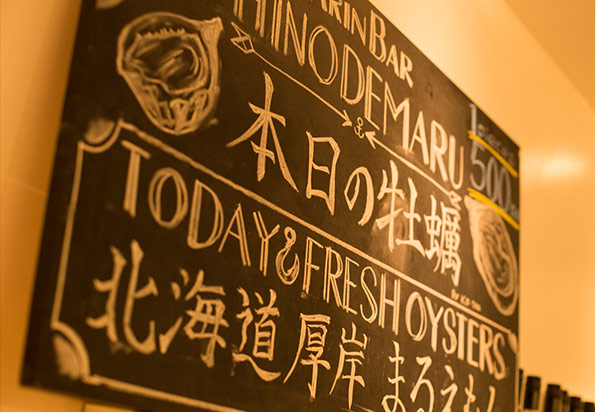 BAR
HINODEMARU
1piece
500
本日の牡蠣
TODAY FRESH OYSTERS
北海道厚岸 まろえもん